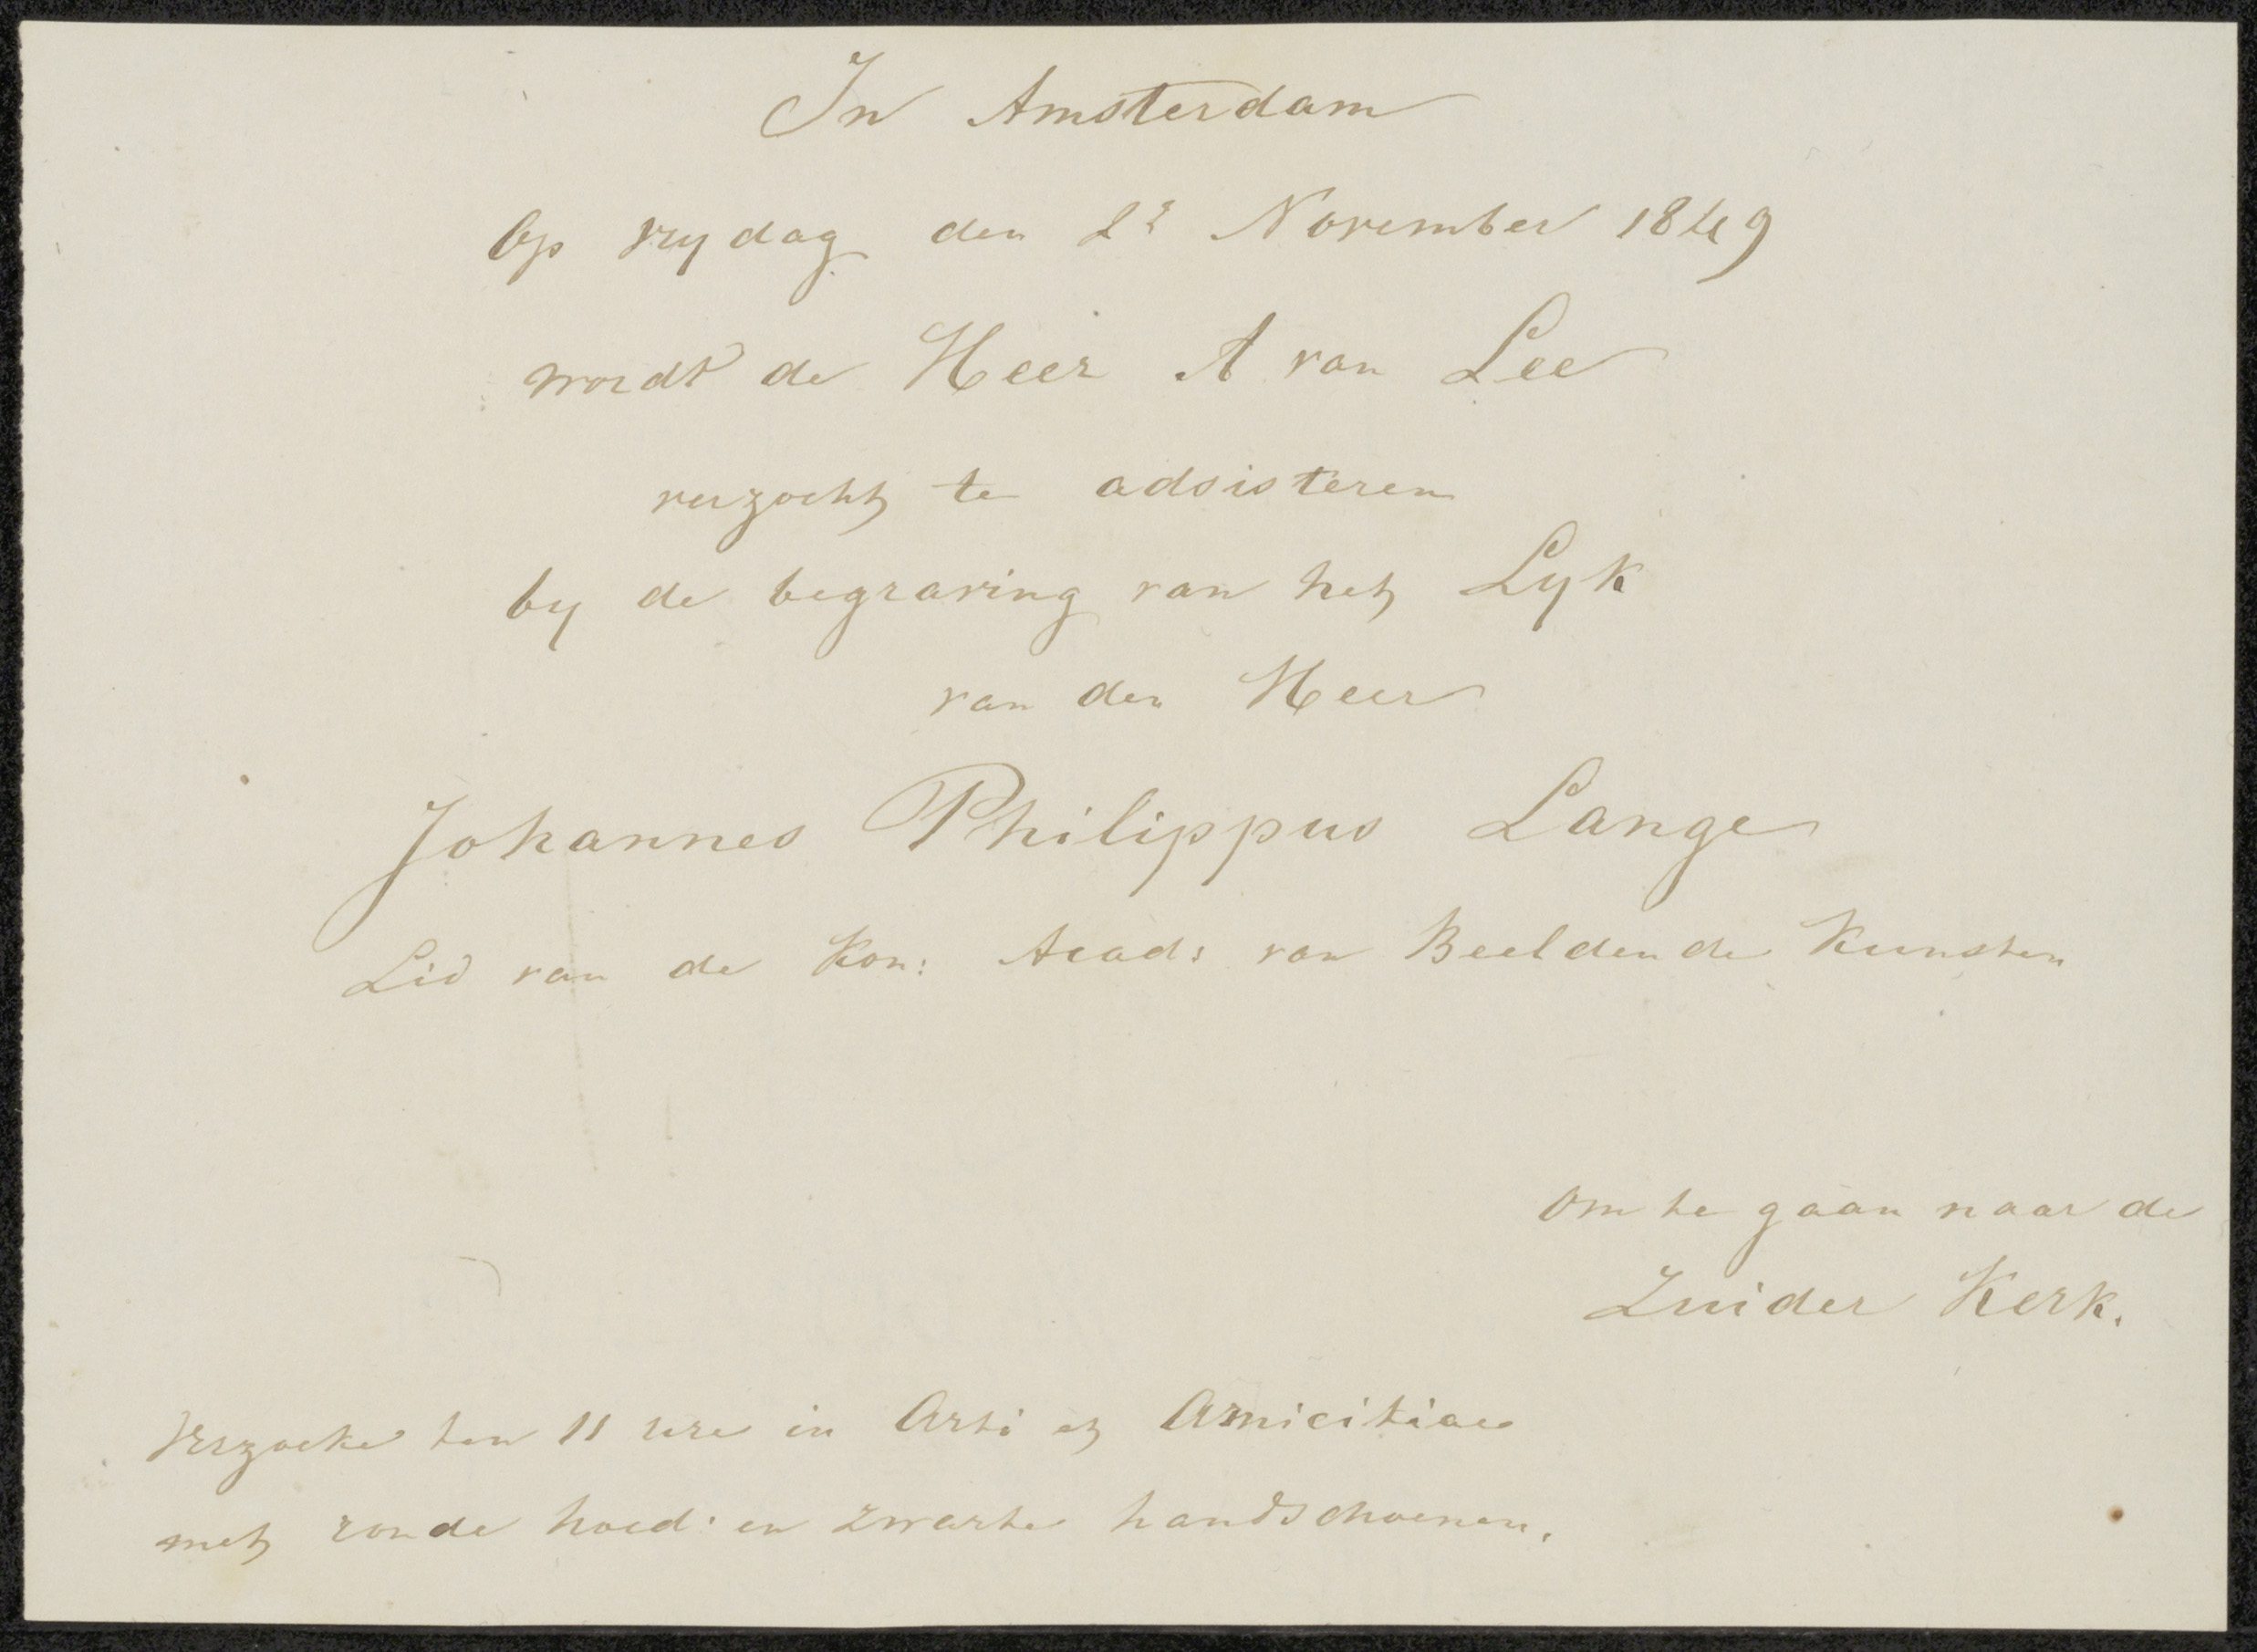 In Amsterdam
Op vrydag den 2e November 1849
wordt de Heer A van Lee
verzocht te adsisteren
by de begraving van het Lyk
van den Heer
Johannes Philippus Lange
Lid van de Kon: Acad: van Beeldende Kunsten
om te gaan naar de
Zuider Kerk.
Verzoeke ten 11 ure in Arti et Amicitiae
met ronde hoed: en zwarte handschoenen.